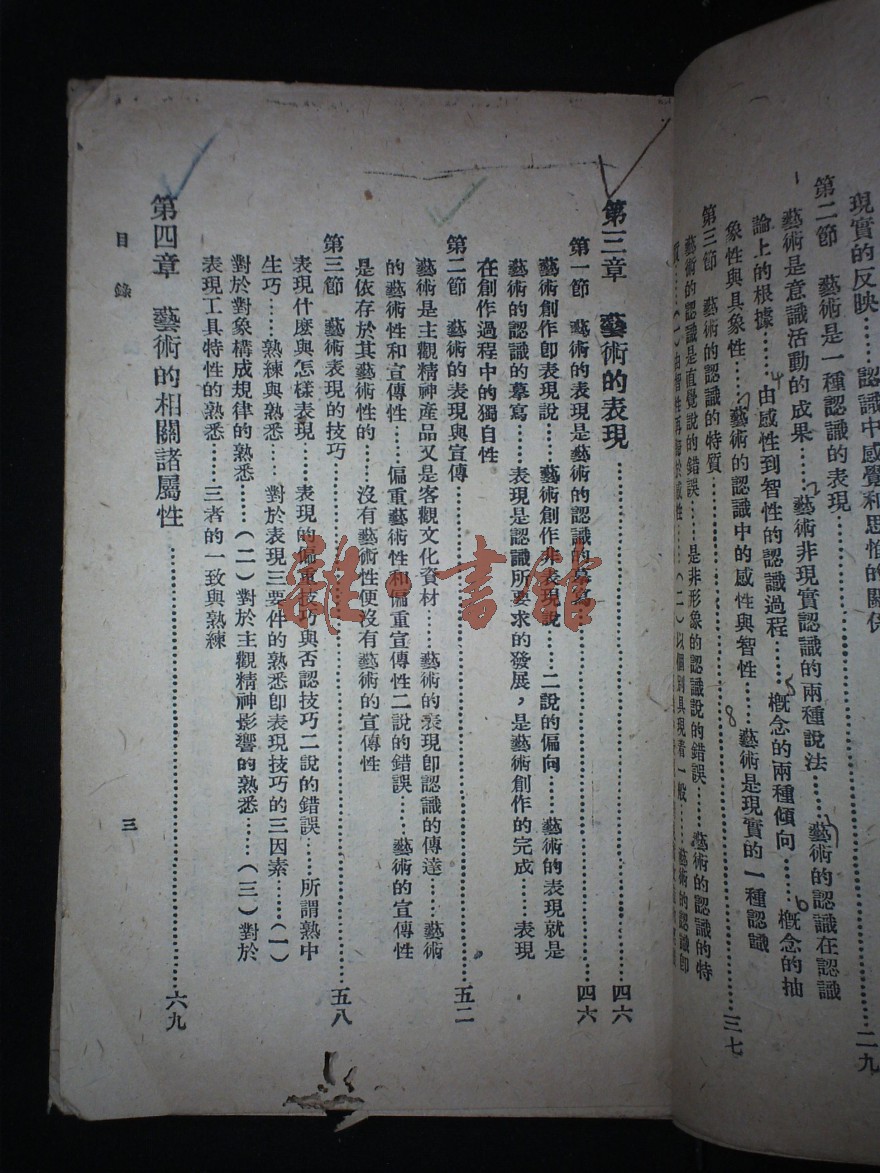 現實的反映……認識中感覺和思惟的關係
第二節　藝術是一種認識的表現……二九
藝術是意識活動的成果……藝術非現實認識的兩種說法……藝術的認識在認識
論上的根據……由感性到智性的認識過程……概念的兩種傾向……概念的抽
象性與具象性……藝術的認識中的感性與智性……藝術是現實的一種認識
第三節　藝術的認識的特質……三七
藝術的認識是直覺說的錯誤……是非形象的認識說的錯誤……藝術的認識的特
質……（一）由智性再歸於感性……（二）以個別具現着一般……藝術的認識卽
第三章　藝術的表現……四六
第一節　藝術的表現是藝術的認識的摹寫……四六
藝術創作卽表現說……藝術創作非表現說……二說的偏向……藝術的表現就是
藝術的認識的摹寫……表現是認識所要求的發展，是藝術創作的完成……表現
在創作過程中的獨自性
第二節　藝術的表現與宣傳……五二
藝術是主觀精神產品又是客觀文化資材……藝術的表現卽認識的傳達……藝術
的藝術性和宣傳性……偏重藝術性和偏重宣傳性二說的錯誤……藝術的宣傳性
是依存於其藝術性的……沒有藝術性便沒有藝術的宣傳性
第三節　藝術表現的技巧……五八
表現什麼與怎樣表現……表現的偏重技巧與否認技巧二說的錯誤……所謂熟中
生巧……熟練與熟悉……對於表現三要件的熟悉卽表現技巧的三因素……（一）
對於對象構成規律的熟悉……（二）對於主觀精神影響的熟悉……（三）對於
表現工具特性的熟悉……三者的一致與熟練
第四章　藝術的相關諸屬性……六九
目錄
三
雜·書館